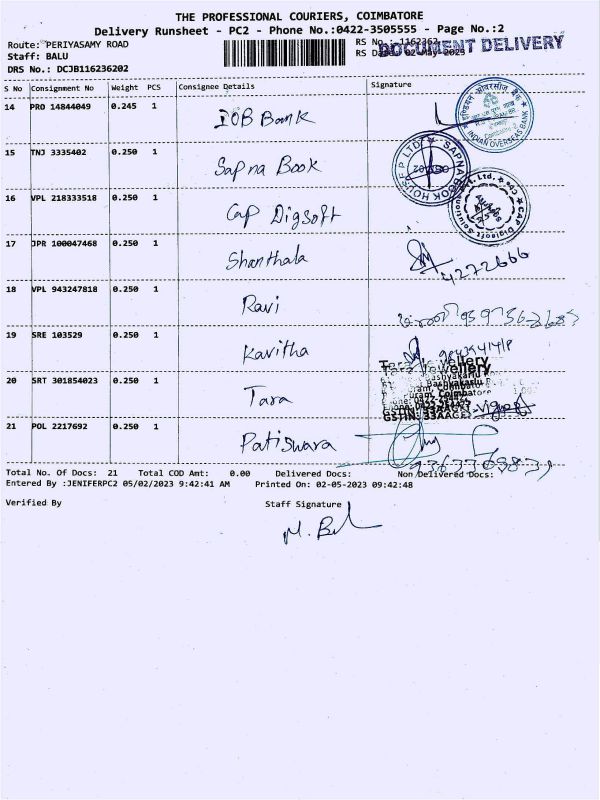 THE PROFESSIONAL COURIERS, COIMBATORE
Delivery Runsheet - PC2 - Phone No.:0422-3505555 - Page No.:2
Route: PERIYASAMY ROAD
RS No.: 1162362
DOCUMENT DELIVERY
Staff: BALU
RS Date: 02-May-2023
DRS No.: DCJB116236202
S No Consignment No Weight PCS Consignee Details Signature
14 PRO 14844049 0.245 1 IOB Bank
INDIAN OVERSEAS BANK
15 TNJ 3335402 0.250 1 Sapna Book
SAPNA BOOK HOUSE P LTD
16 VPL 218333518 0.250 1 Cap Digsoft
Cap Digisoft Solutions Pvt. Ltd.
17 JPR 100047468 0.250 1 Shanthala
4272666
18 VPL 943247818 0.250 1 Ravi
19 SRE 103529 0.250 1 Kavitha
Tara Jewellery
20 SRT 301854023 0.250 1 Tara
21 POL 2217692 0.250 1 Patiswara
Total No. Of Docs: 21 Total COD Amt: 0.00 Delivered Docs: Non Delivered Docs:
Entered By :JENIFERPC2 05/02/2023 9:42:41 AM Printed On: 02-05-2023 09:42:48
Verified By Staff Signature